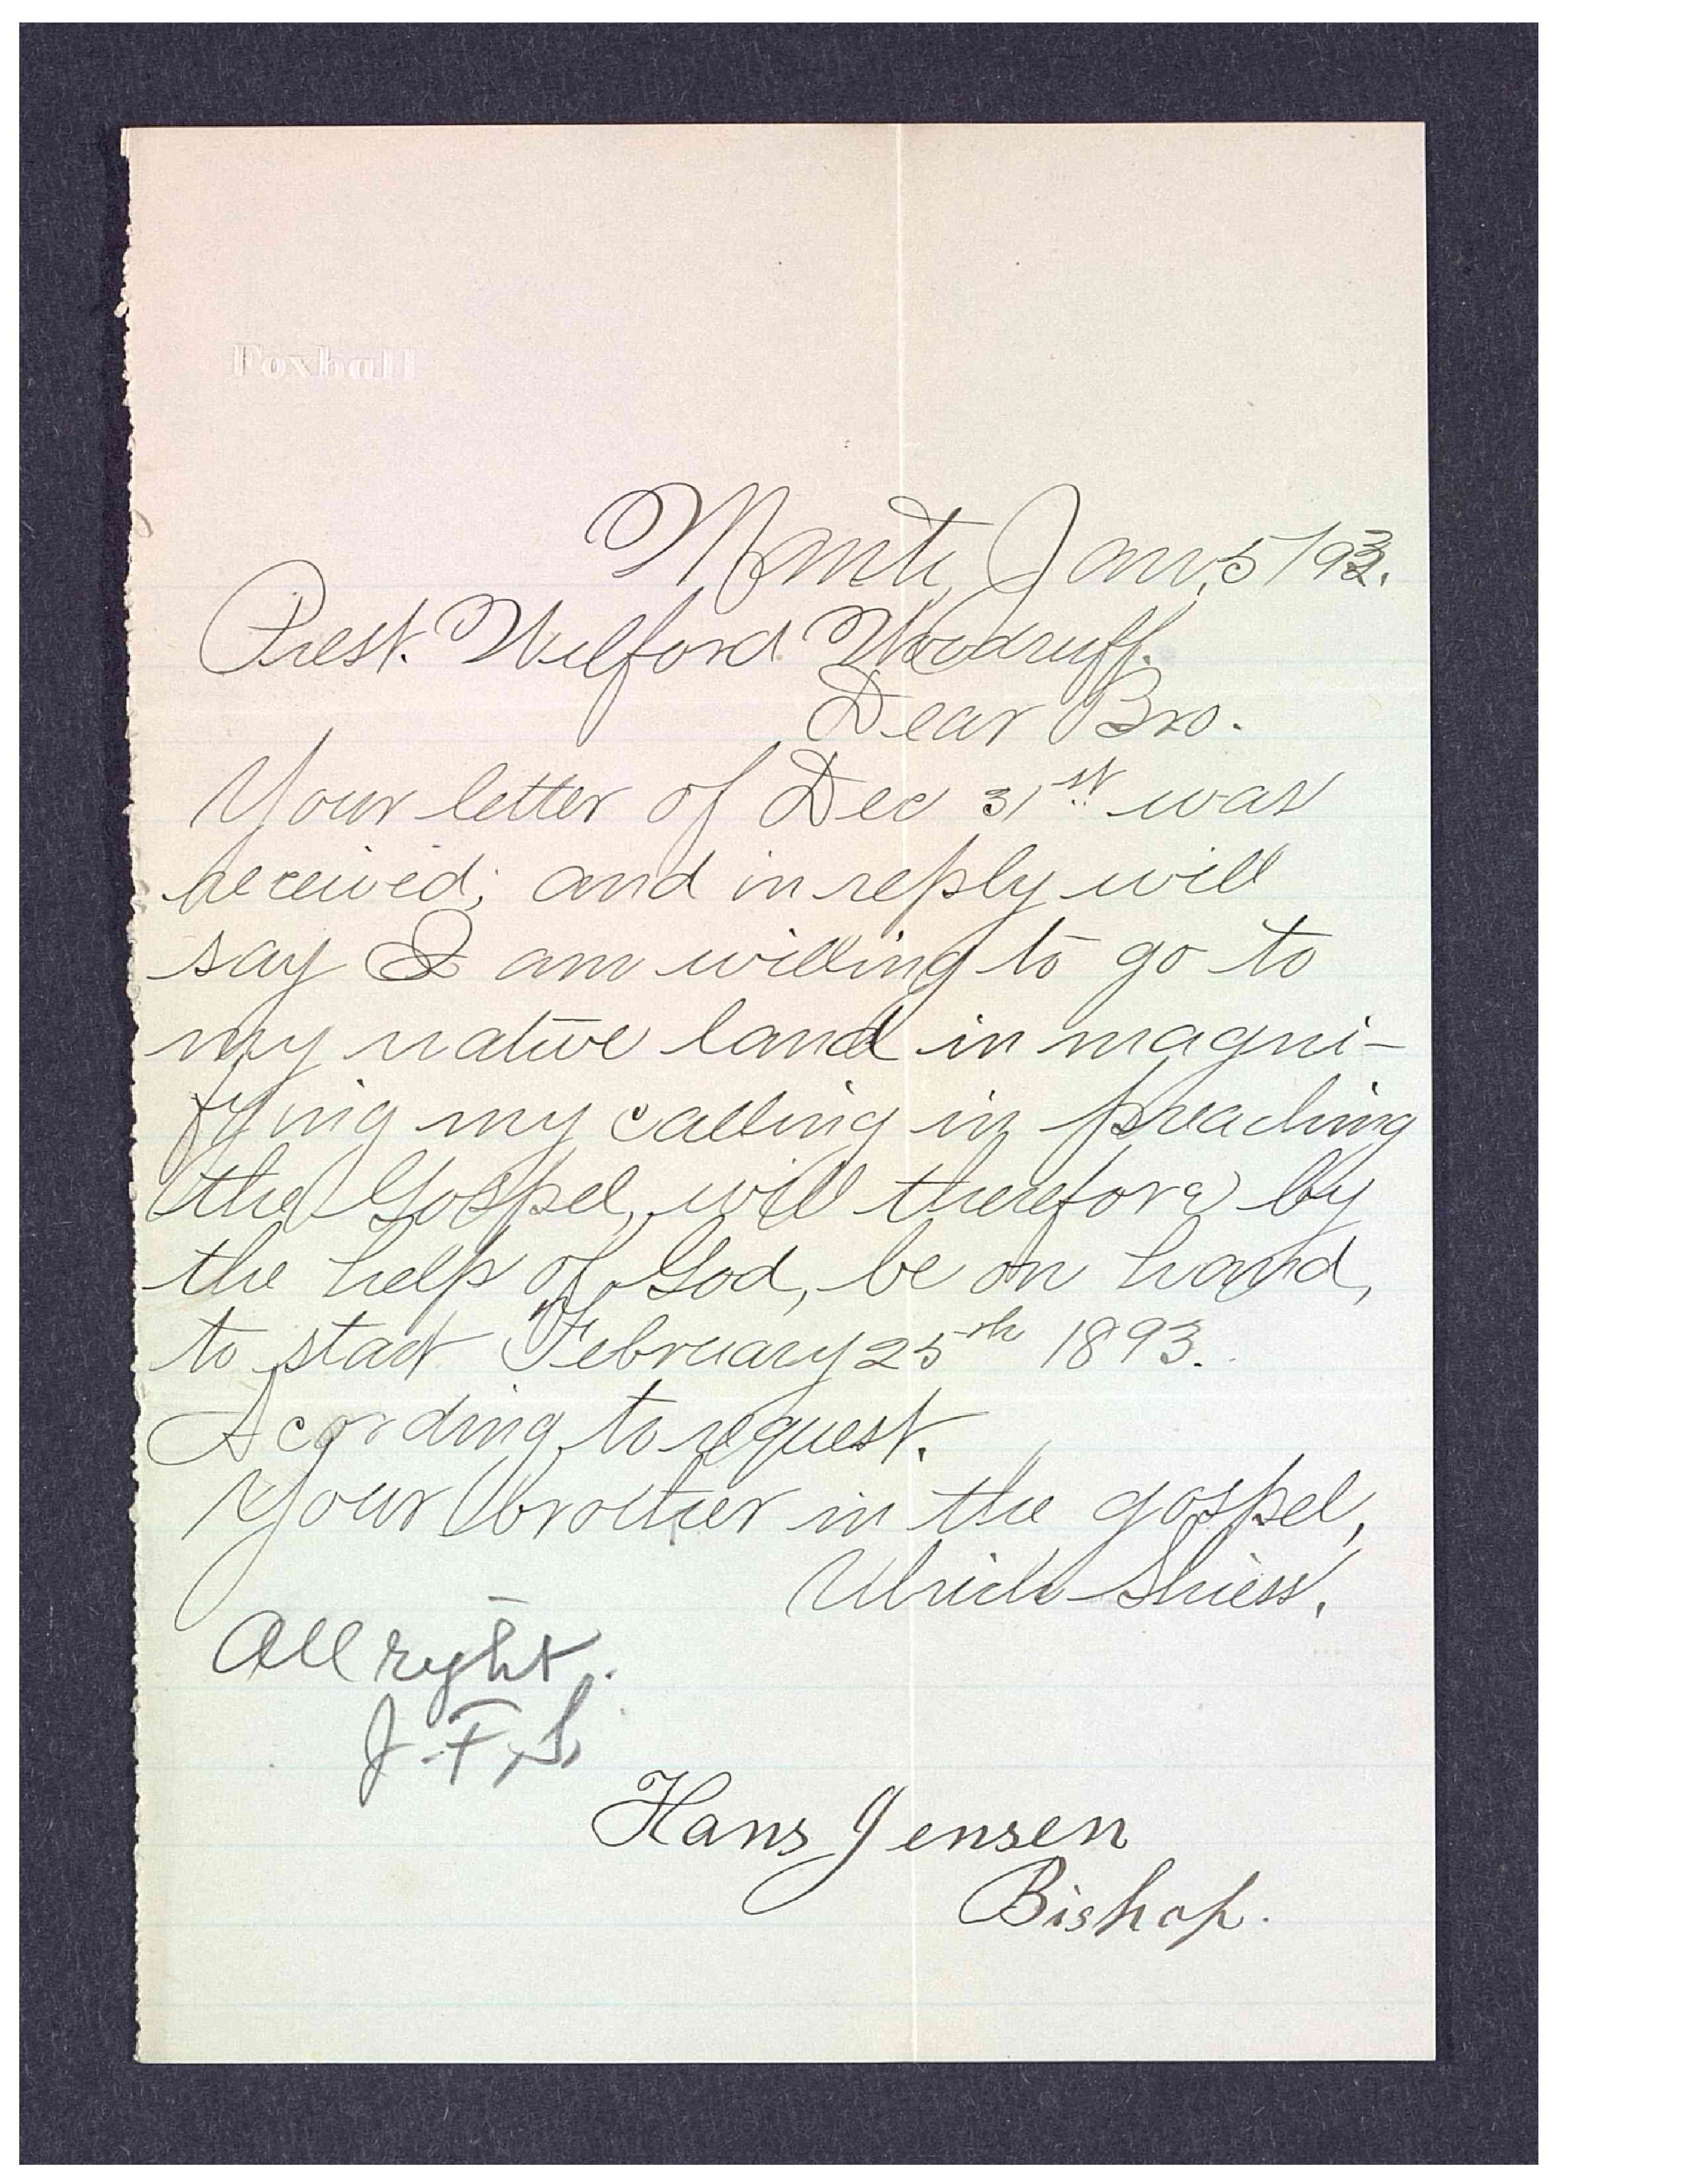 Foxhall
Manti, Jan. 5/93.
Prest. Wilford Woodruff.
Dear Bro.
Your letter of Dec 31st was
received; and in reply will
say I am willing to go to
my native land in magni-
fying my calling in preaching
the Gospel, will therefore by
the help of God, be on hand,
to start February 25th 1893.
Acording to request.
Your brother in the gospel,
Ulrich Shiess.
All right.
J. F. S.
Hans Jensen
Bishop.